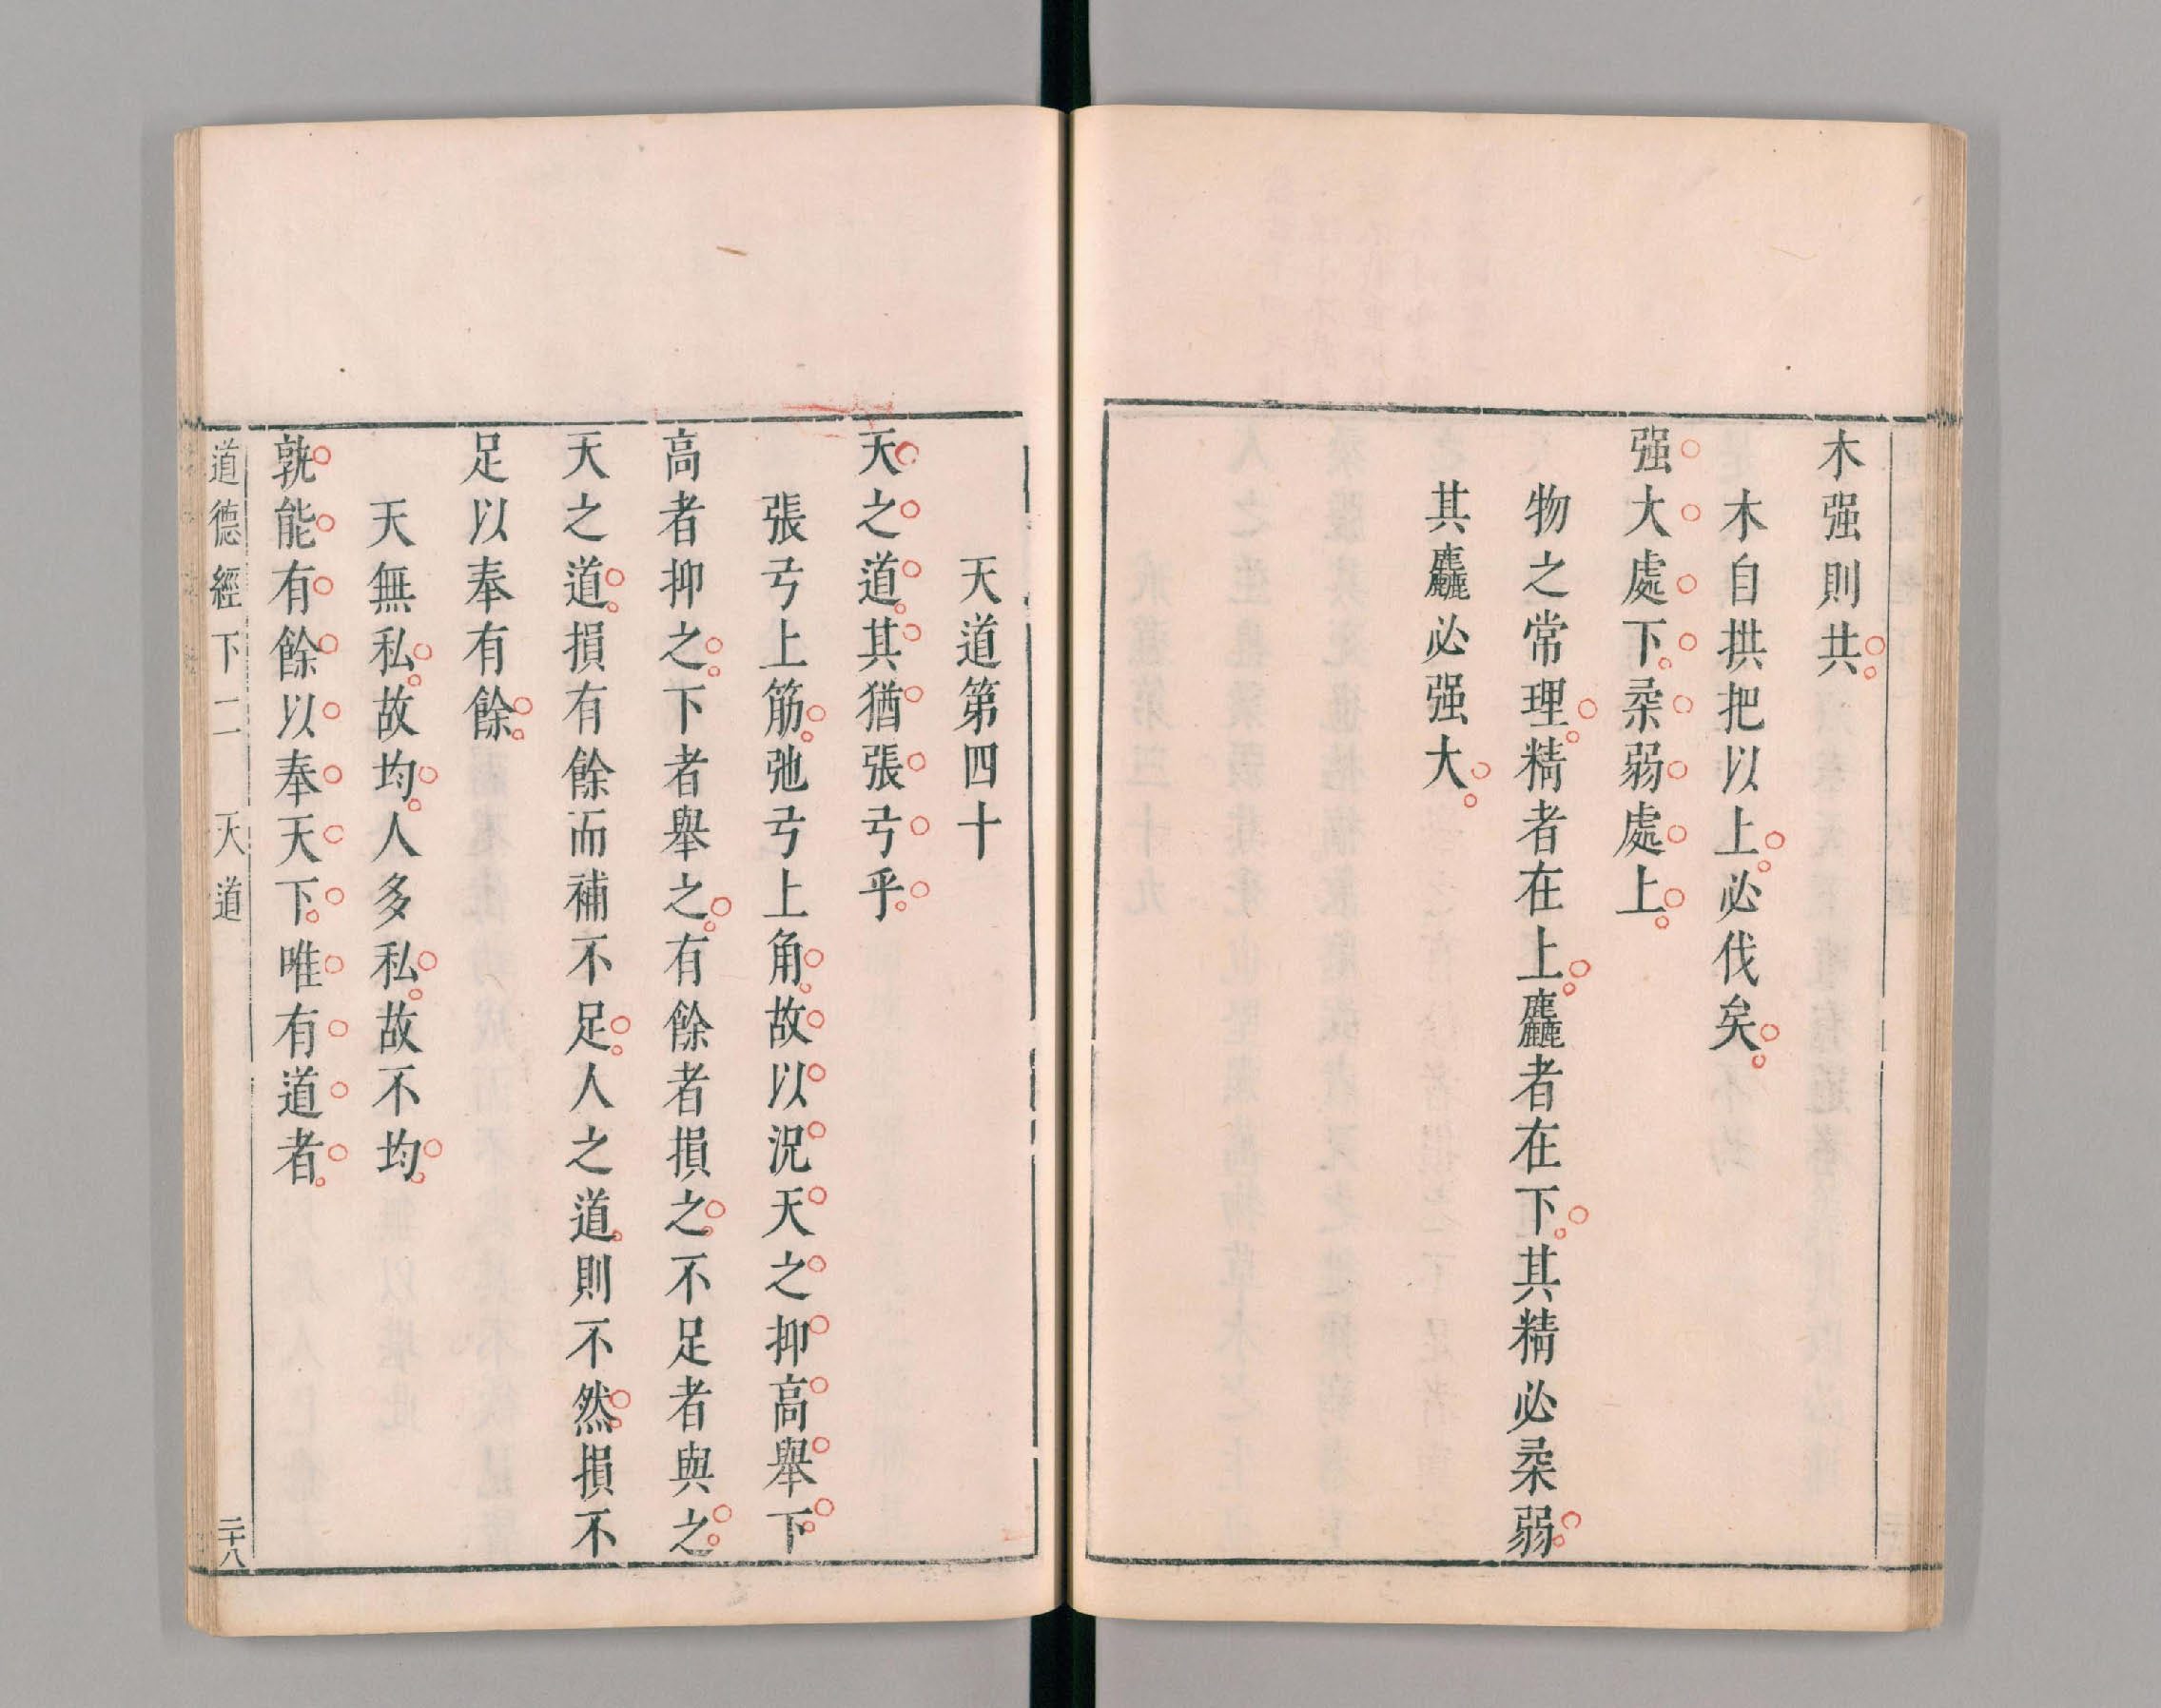 木强則共
木自拱把以上必伐矣
强大處下柔弱處上
物之常理精者在上麤者在下其精必柔弱
其麤必强大
天道第四十
天之道其猶張弓乎
張弓上筋弛弓上角故以況天之抑高舉下
高者抑之下者舉之有餘者損之不足者與之
天之道損有餘而補不足人之道則不然損不
足以奉有餘
天無私故均人多私故不均
孰能有餘以奉天下唯有道者
道德經下二 天道 二十八